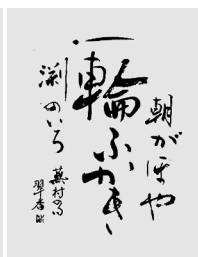 朝がほや
一輪ふかき
淵のいろ
蕪村の句
翠香